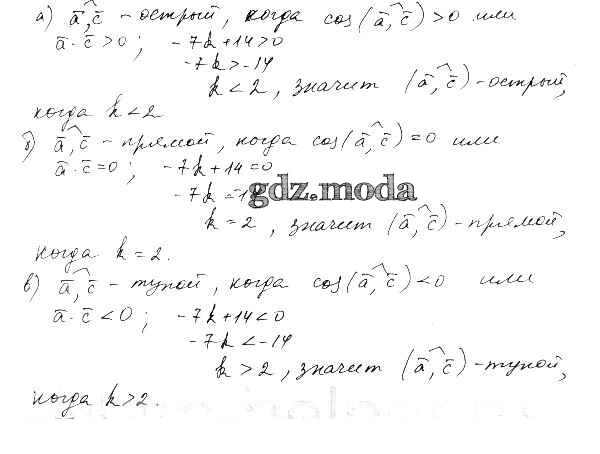 а) a̅,c̅ - острый, когда cos(a̅,c̅)>0 или
a̅·c̅>0; -7k+14>0
-7k>-14
k<2, значит (a̅,c̅)-острый,
когда k<2
б) a̅,c̅ - прямой, когда cos(a̅,c̅)=0 или
a̅·c̅=0; -7k+14=0
-7k=-14
gdz.moda
k=2, значит (a̅,c̅)-прямой,
когда k=2.
в) a̅,c̅ - тупой, когда cos(a̅,c̅)<0 или
a̅·c̅<0; -7k+14<0
-7k<-14
k>2, значит (a̅,c̅)-тупой,
когда k>2.